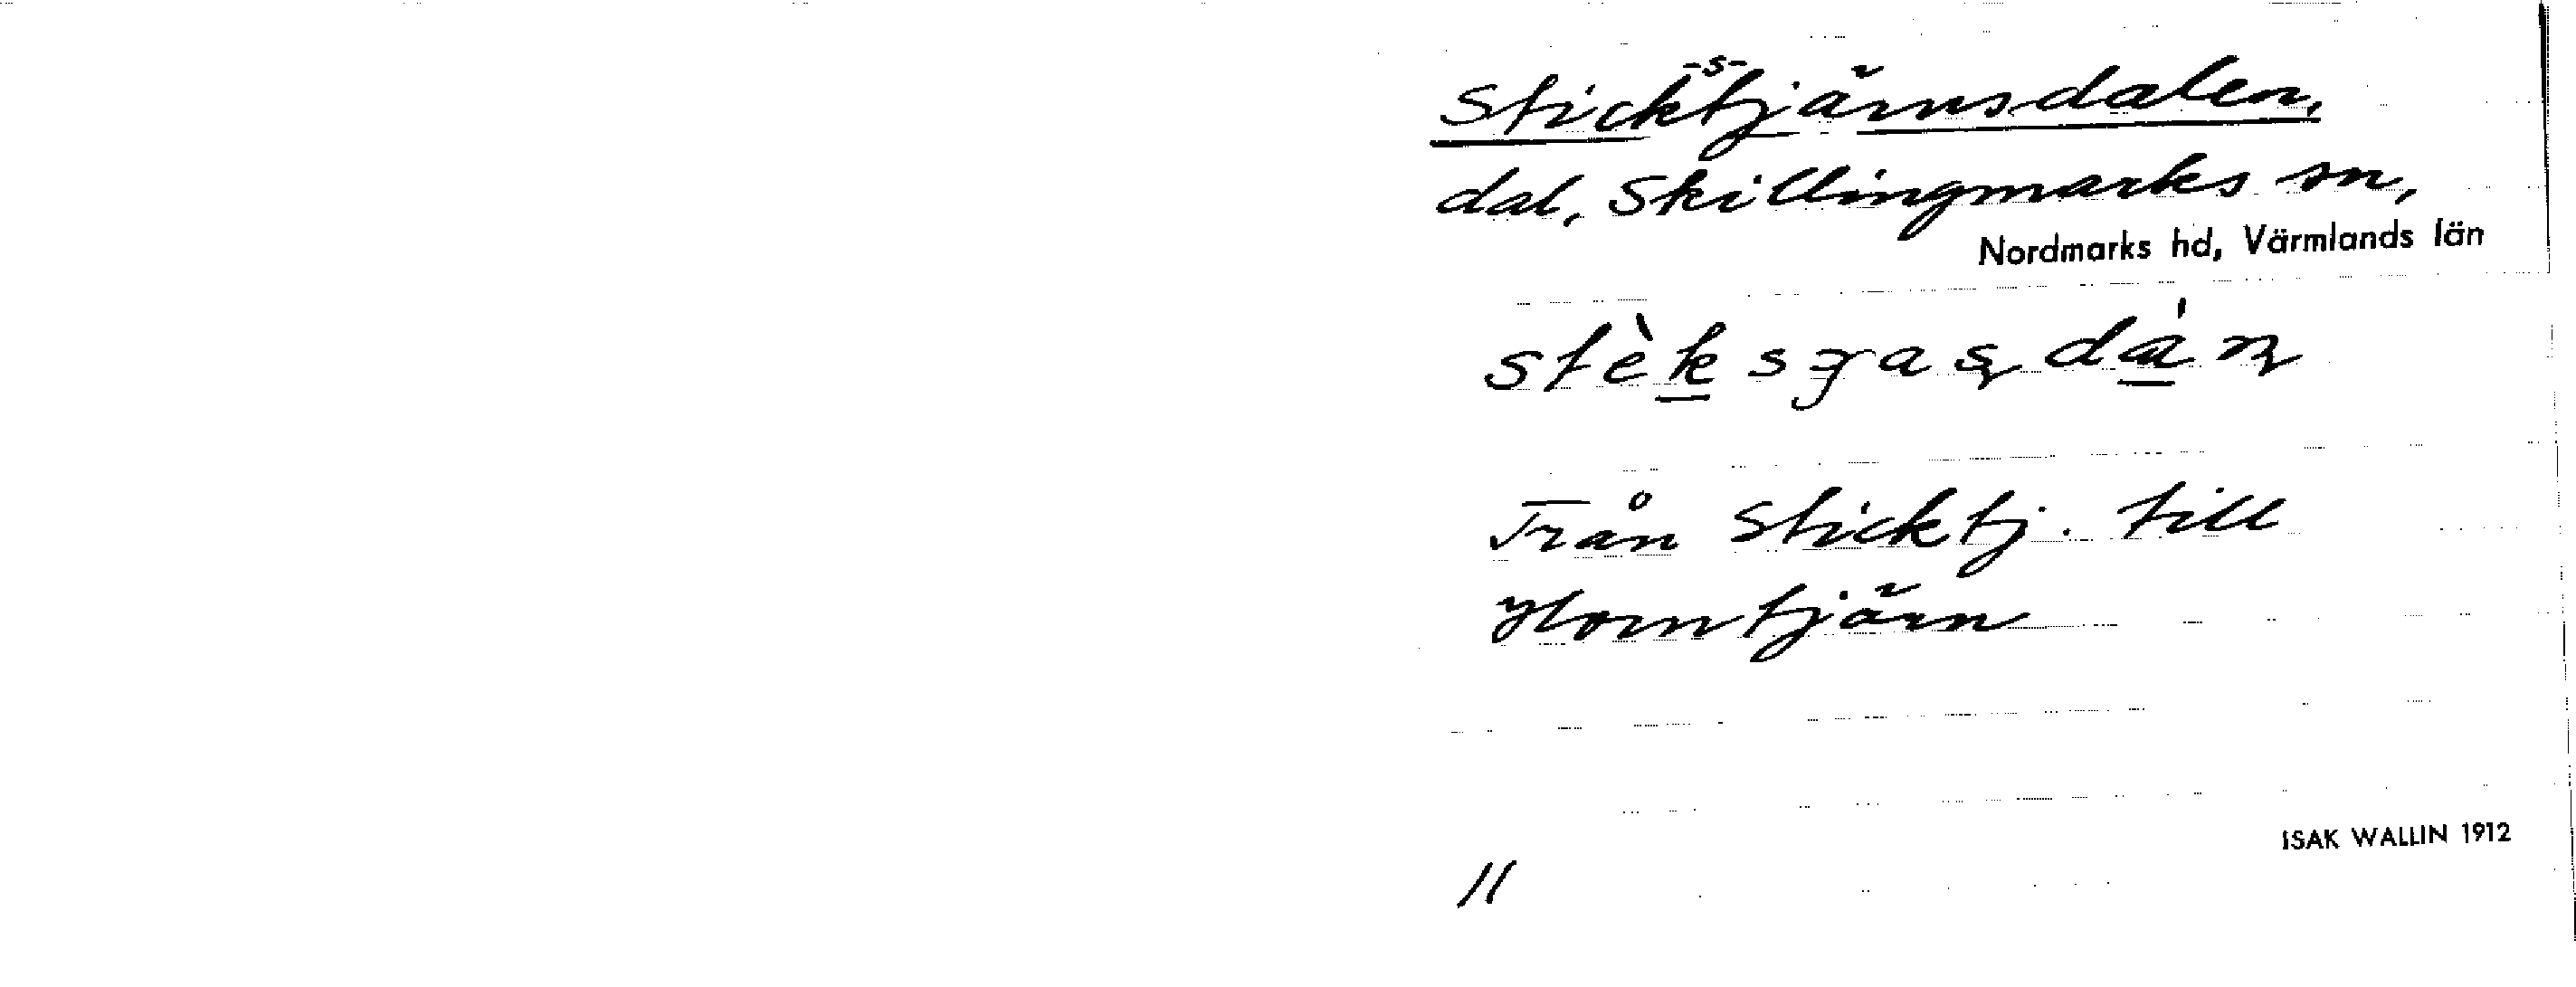 -s-
Sticktjärnsdalen,
dal, Skillingmarks sn,
Nordmarks hd, Värmlands län
Från Sticktj. till
Horntjärn
ISAK WALLIN 1912
11